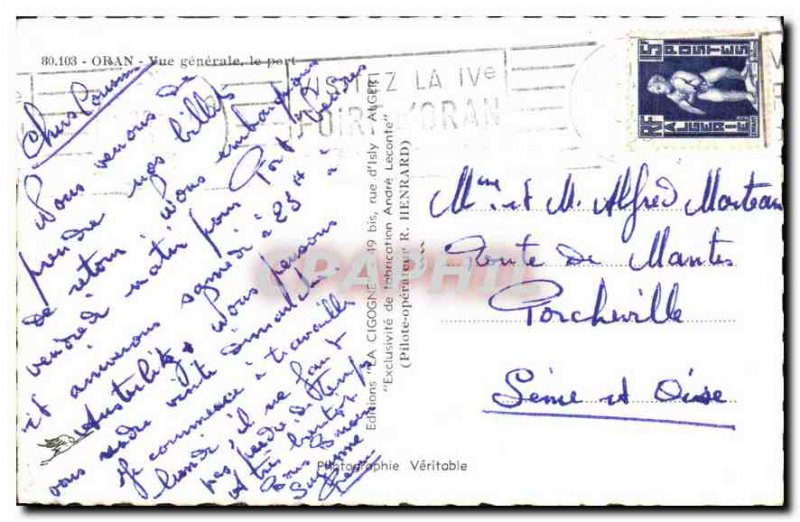 80.103 - ORAN - Vue générale, le port
Chers Cousins
Nous venons de
prendre nos billets
de retour. Nous embarquons
vendredi matin pour Port-Vendres
et arriverons samedi à 23H à
Austerlitz. Nous pensons
vous rendre visite dimanche.
Je commence à travailler
lundi, il ne faut
pas perdre de temps
A très bientôt
Suzanne
Editions "LA CIGOGNE" 49 bis, rue d'Isly - ALGER
"Exclusivité de fabrication André Leconte"
(Pilote-opérateur R. HENRARD)
Photographie Véritable
VISITEZ LA IVe
FOIRE D'ORAN
15F POSTES
RF ALGERIE
Mme et M. Alfred Morteau
Route de Mantes
Porcheville
Seine et Oise
CPAPHIL